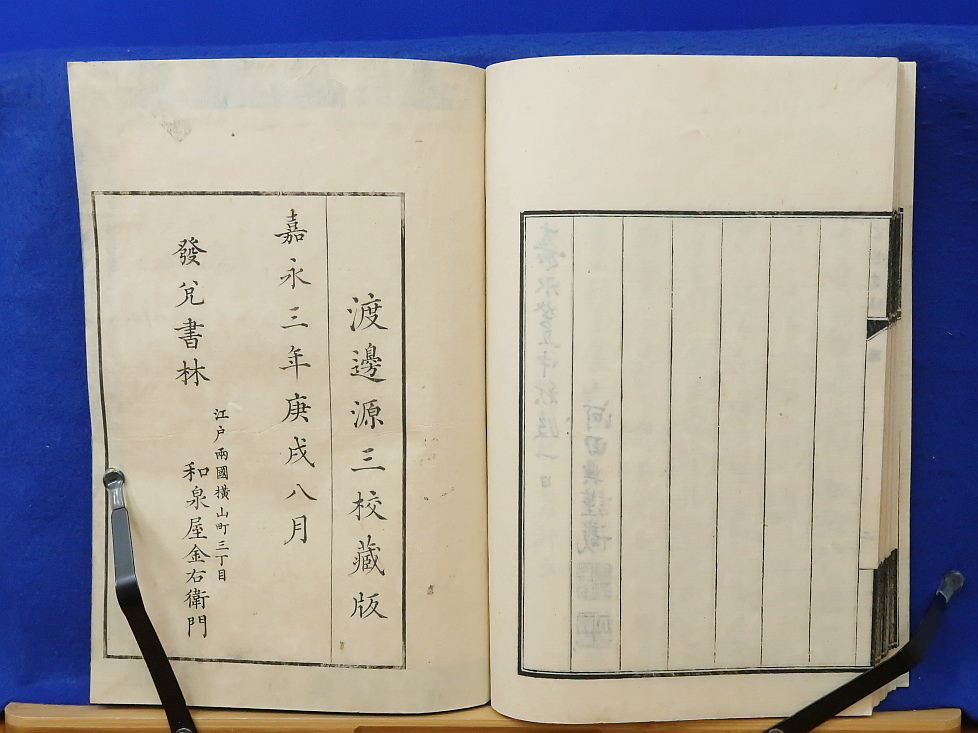 渡邊源三校藏版
嘉永三年庚戌八月
發兌書林
江戸兩國横山町三丁目
和泉屋金右衛門